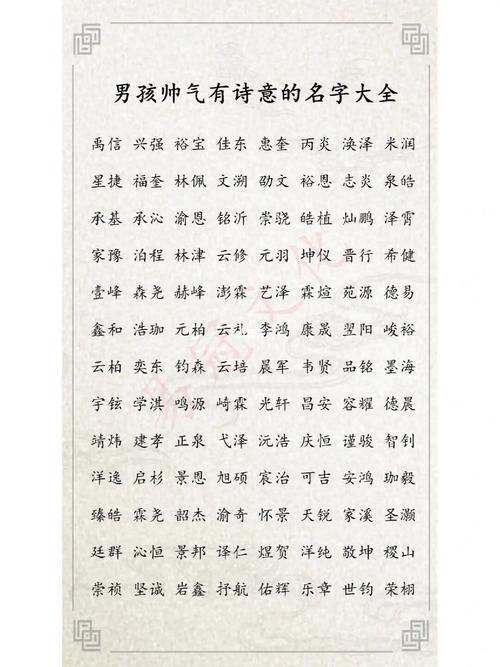 男孩帅气有诗意的名字大全
禹信 兴强 裕宝 佳东 惠奎 丙炎 涣泽 米润
星捷 福奎 林佩 文溯 劭文 裕恩 志炎 泉皓
承基 承沁 渝恩 铭沂 崇骁 皓植 灿鹏 泽霄
家豫 泊程 林津 云修 元羽 坤仪 晋行 希健
壹峰 森尧 赫峰 澎霖 艺泽 霖煊 苑源 德易
鑫和 浩珈 元柏 云礼 李鸿 康晟 翌阳 峻裕
云柏 奕东 钧森 云培 晨军 韦贤 品铭 墨海
宇铉 学淇 鸣源 崎霖 光轩 昌安 容耀 德晨
靖炜 建孝 正泉 弋泽 沅浩 庆恒 谨骏 智钊
洋逸 启杉 景恩 旭硕 宸治 可吉 安鸿 珈毅
臻皓 霖尧 韶杰 渝奇 怀景 天锐 家溪 圣灏
廷群 沁恒 景邦 译仁 煜贺 洋纯 敬坤 稷山
崇祯 坚诚 岩鑫 抒航 佑辉 乐章 世钧 荣栩
易冠文化